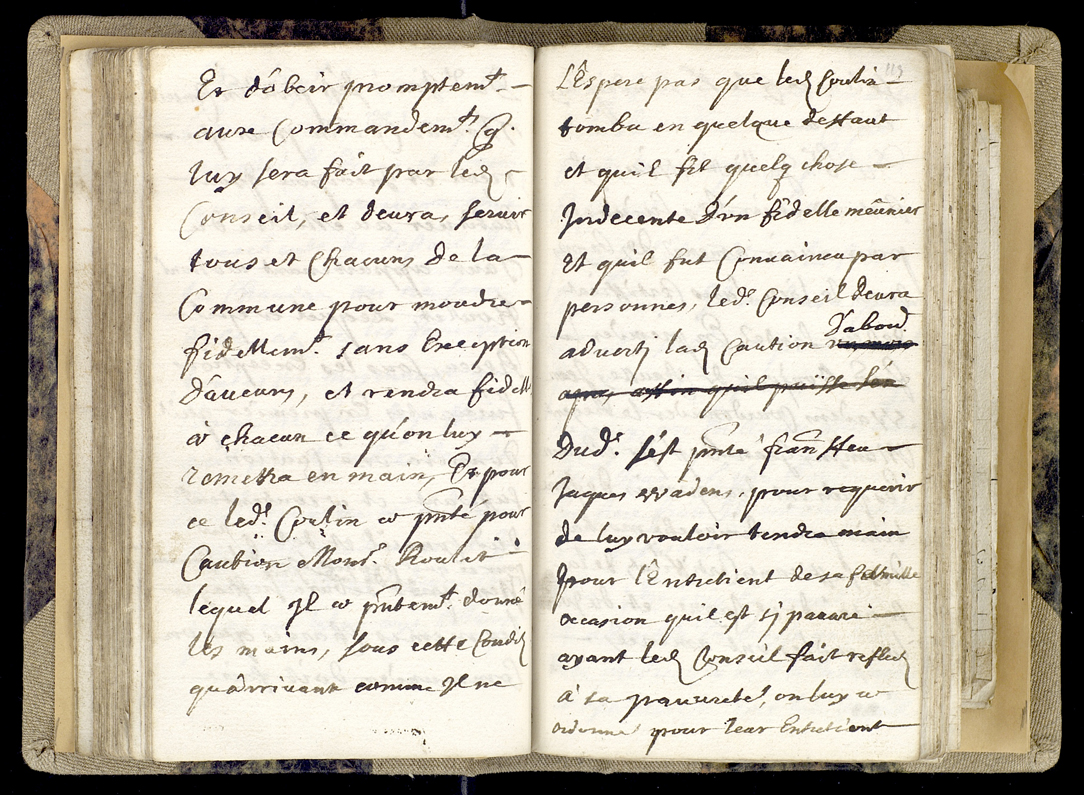 Et d'obeir promptemt. —
aux Commandemt. q.
luy sera fait par led.
Conseil, et devra, servir
tous et Chacuns de la —
Commune pour moudre —
fidellemt. sans Exception
d'aucuns, et rendra fidell
à chacun ce qu'on luy —
remettra en main, Et pour
ce led. Coulin a pnté pour
Caution Monsr. Roulet
lequel Jl a pntemt. donné
les mains, sous cette Condi
qu'arrivant comme Jl ne
113
L'Espere pas que led Coulin —
tomba en quelque deffaut
et quil fit quelq chose —
Jndecente d'un fidelle meûnier
Et quil fut Convaincu par
personnes, led. Conseil devra
adverti lad Caution d'abord.
apres affin quil puisse
Dud. s'est pnté
Jaques, pour requerir
de luy vouloir tendre main
pour l'Entretient de sa famille
occasion quil est si pauvre —
ayant led Conseil fait reflec
à sa pauvreté, on luy a
ordonné pour leur Entretient